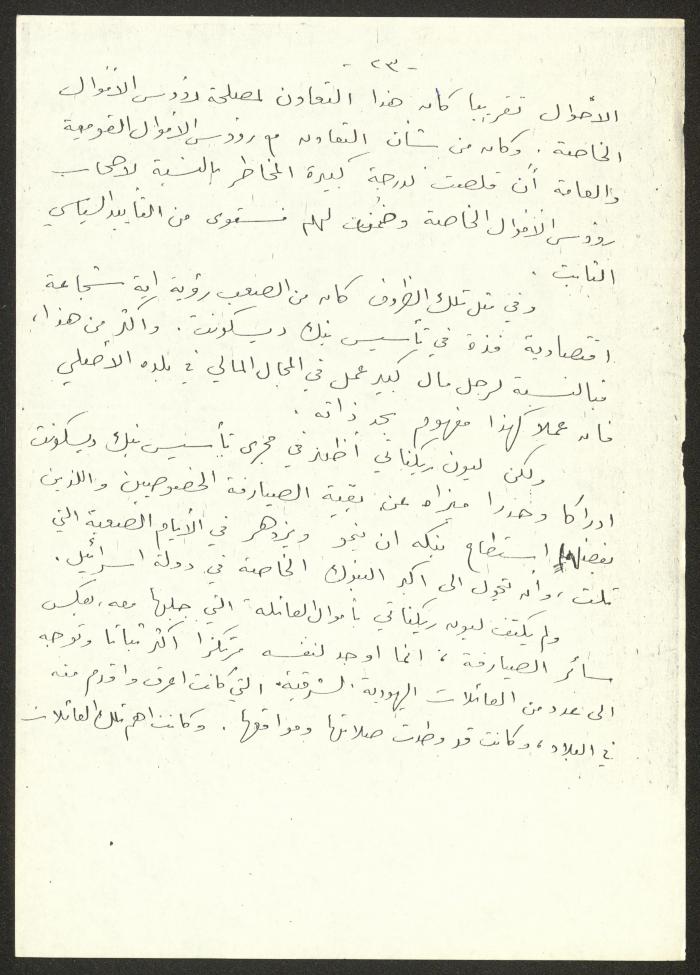 - ٢٣ -
الأحوال تقريبا كان هذا التعاون لمصلحة رؤوس الأموال
الخاصة . وكان من شأن التعاون مع رؤوس الأموال القومية
والعامة أن قلصت لدرجة كبيرة المخاطر بالنسبة لاصحاب
رؤوس الأموال الخاصة وضمنت لهم مستوى من التأييد السياسي
الثابت .
وفي مثل تلك الظروف كان من الصعب رؤية اية شجاعة
اقتصادية فذة في تأسيس بنك ديسكونت . وأكثر من هذا،
فبالنسبة لرجل مال كبير عمل في المجال المالي في بلده الأصلي
فان عملا كهذا مفهوم بحد ذاته .
ولكن ليون ريكناتي أظهر في مجرى تأسيس بنك ديسكونت
ادراكا وحذرا ميزاه عن بقية الصيارفة الخصوصيين واللذين
بفضلهما استطاع بنكه ان ينمو ويزدهر في الأيام الصعبة التي
تلت ، وأن تحول الى اكبر البنوك الخاصة في دولة اسرائيل .
ولم يكتف ليون ريكناتي بأموال العائلة التي جلبها معه ، بعكس
سائر الصيارفة ، انما اوجد لنفسه مرتكزا أكثر ثباتا وتوجه
الى عدد من العائلات اليهودية الشرقية التي كانت اعرق واقدم منه
في البلاد ، وكانت قد وطدت صلاتها ومواقعها . وكانت اهم تلك العائلات